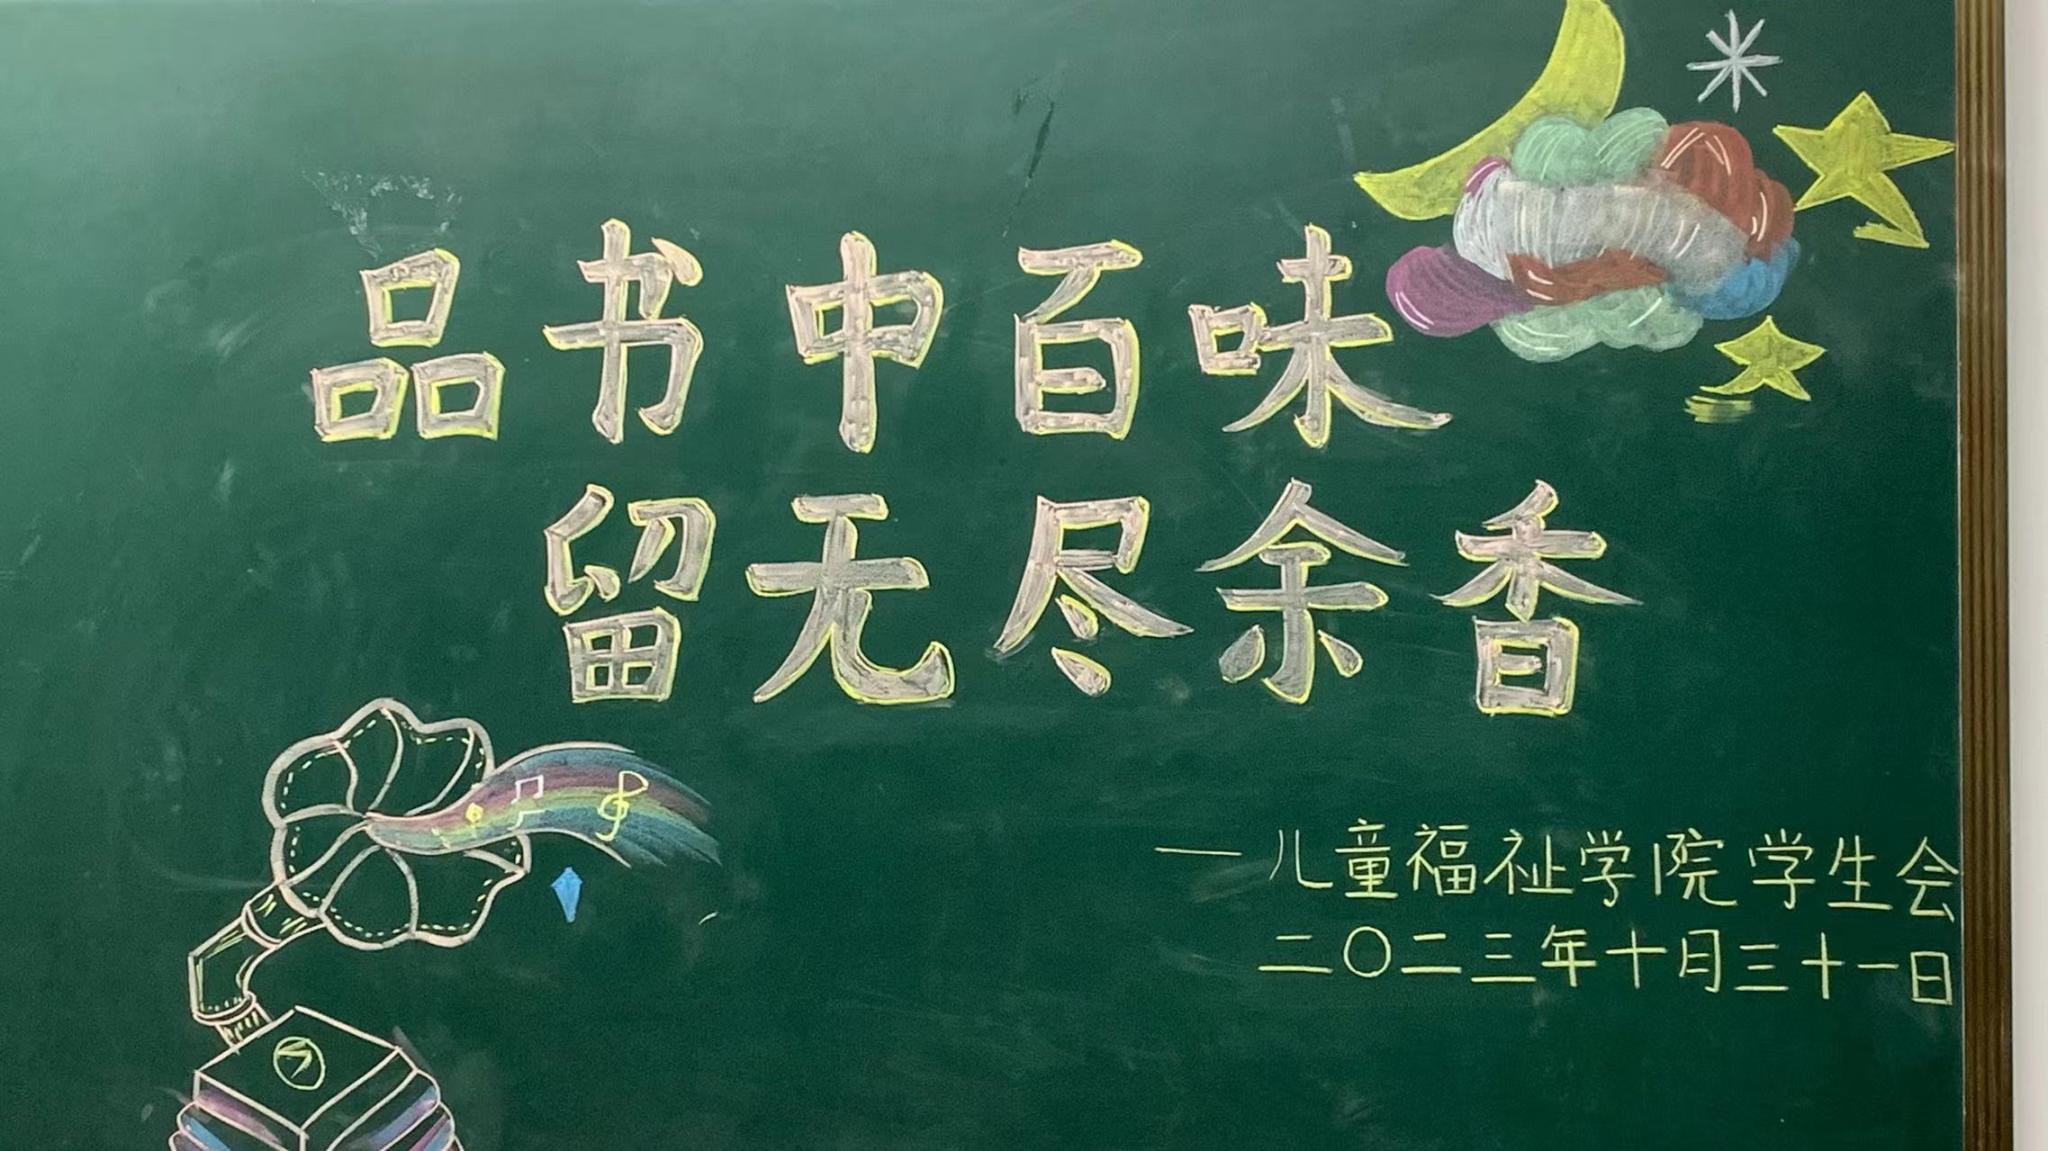 品书中百味
留无尽余香
一儿童福祉学院学生会
二〇二三年十月三十一日